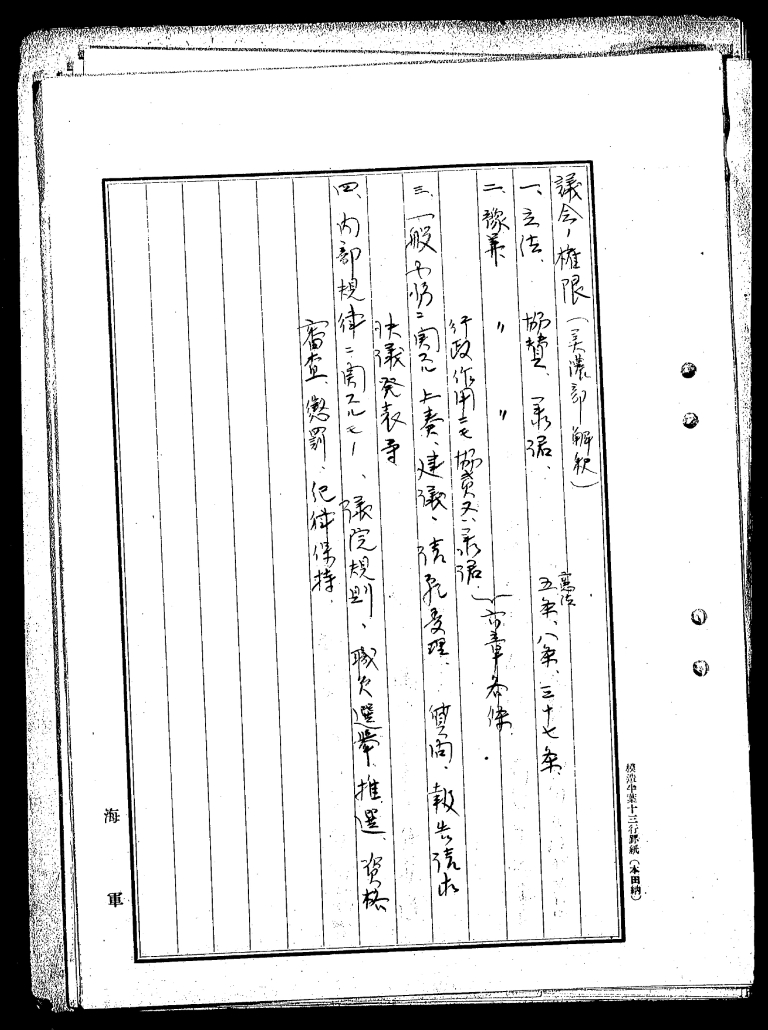 議会ノ権限（美濃部解釈）
一、立法、協賛、承諾、憲法五条、八条、三十七条
二、豫算、〃 〃
行政作用ニモ協賛又ハ承諾（六章各条
三、一般事項ニ関スル上奏、建議、請願受理、質問、報告請求
決議発表等
四、内部規律ニ関スルモノ、議院規則、職員選挙、推選、資格
審査、懲罰、紀律保持
海軍
模造半葉十三行罫紙（本田納）